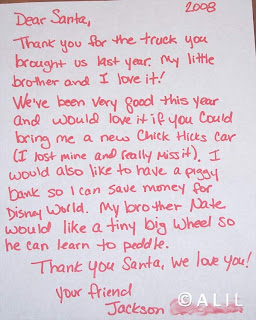 2008
Dear Santa,
Thank you for the truck you
brought us last year. My little
brother and I love it!
We've been very good this year
and would love it if you could
bring me a new Chick Hicks car
(I lost mine and really miss it). I
would also like to have a piggy
bank so I can save money for
Disney World. My brother Nate
would like a tiny big wheel so
he can learn to peddle.
Thank you Santa, we love you!
Your friend
Jackson
©ALIL